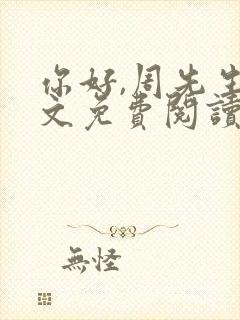 你好,周先生
文免費閱讀
無怪